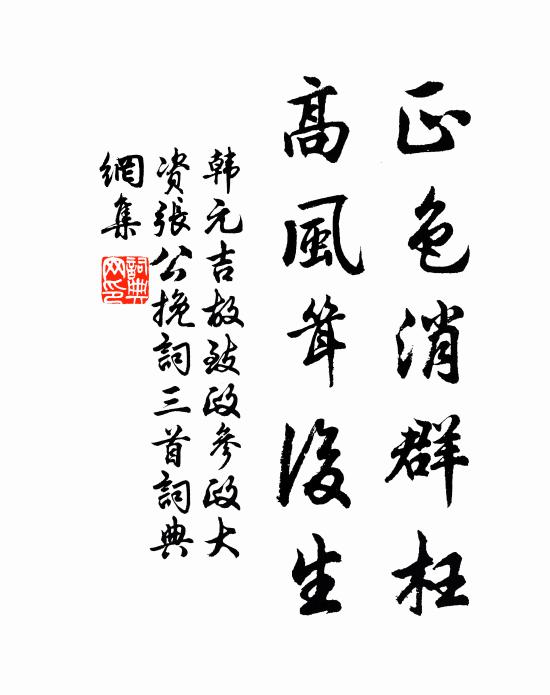 正色消群枉
高風耸後生
韩元吉故致政參政大
资張公挽詞三首詞典
網集
詞典网印